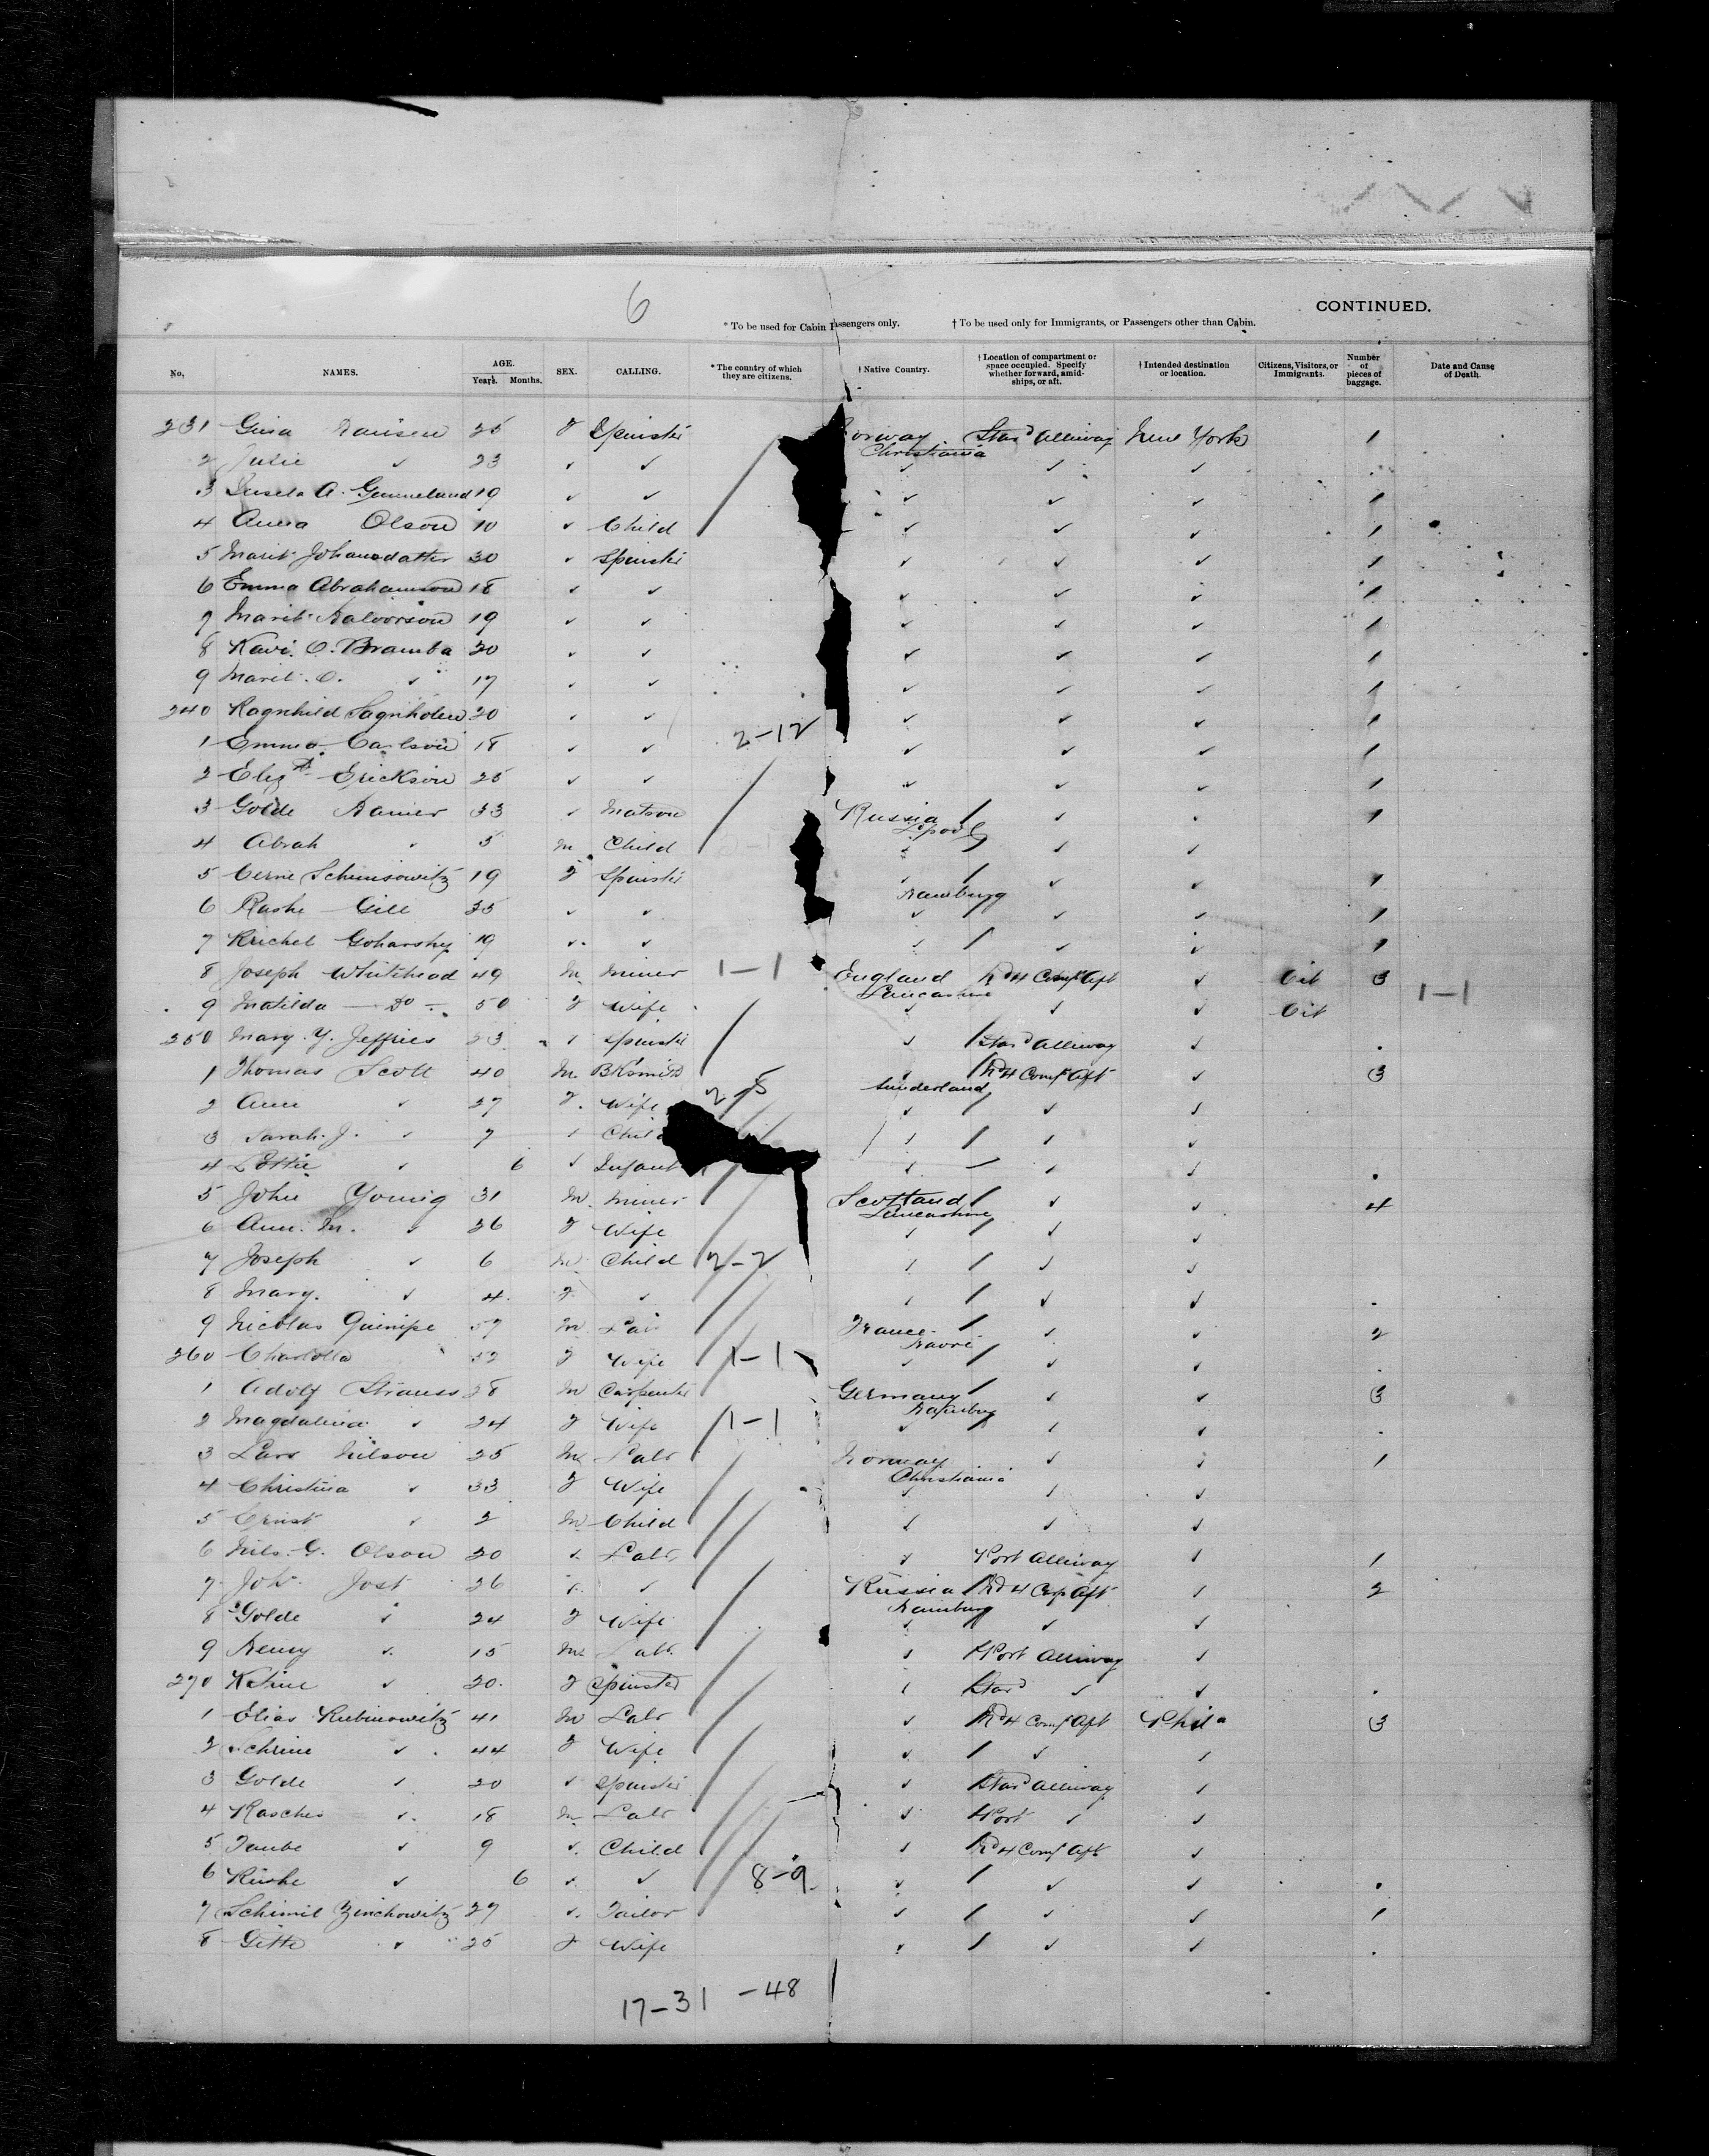 6
CONTINUED.
* To be used for Cabin Passengers only. † To be used only for Immigrants, or Passengers other than Cabin.
No. NAMES. AGE. Years. Months. SEX. CALLING. * The country of which they are citizens. † Native Country. † Location of compartment or space occupied. Specify whether forward, amidships, or aft. † Intended destination or location. Citizens, Visitors, or Immigrants. Number of pieces of baggage. Date and Cause of Death.
231 Gina Hansen 25 F Spinster Norway Christiania Star'd Alleiway New York 1
2 Julie ✓ 23 ✓ ✓ ✓ ✓ ✓
3 A. 19 ✓ ✓ ✓ ✓ ✓ 1
4 Anna Olson 10 ✓ Child ✓ ✓ ✓ 1
5 Marit Johansdatter 30 ✓ Spinster ✓ ✓ ✓ 1
6 Emma Abrahamson 18 ✓ ✓ ✓ ✓ ✓ 1
7 Marit Halvorson 19 ✓ ✓ ✓ ✓ ✓ 1
8 Kari O. Bramba 20 ✓ ✓ ✓ ✓ ✓ 1
9 Marit O. ✓ 17 ✓ ✓ ✓ ✓ ✓ 1
240 Ragnhild 20 ✓ ✓ ✓ ✓ ✓ 1
1 Emma Carlson 18 ✓ ✓ 2-12 ✓ ✓ ✓ 1
2 Elizth Erickson 25 ✓ ✓ ✓ ✓ ✓ 1
3 Golde 33 ✓ Matron Russia L'pool ✓ 1
4 Abrah ✓ 5 M Child ✓ ✓ ✓
5 Schimsowitz 19 F Spinster ✓ Hamburg ✓ ✓ 1
6 Rashe Gill 35 ✓ ✓ ✓ ✓ ✓ 1
7 Goharsky 19 ✓ ✓ ✓ ✓ ✓ 1
8 Joseph Whitehead 49 M Miner 1-1 England Lancashire No 4 Comp't Aft ✓ Cit 3
9 Matilda — Do — 50 F Wife ✓ ✓ ✓ Cit 1-1
250 Mary Y. Jeffries 23 ✓ Spinster ✓ Star'd Alleiway ✓
1 Thomas Scott 40 M BKsmith ✓ Sunderland No 4 Comp't Aft ✓ 3
2 Ann ✓ 27 F Wife 2-5 ✓ ✓ ✓
3 Sarah J. ✓ 7 ✓ Child ✓ ✓ ✓
4 Lottie ✓ 6 ✓ Infant ✓ ✓ ✓
5 John Young 31 M Miner Scotland Lancashire ✓ ✓ 4
6 Ann M. ✓ 26 F Wife ✓ ✓ ✓
7 Joseph ✓ 6 M Child 2-2 ✓ ✓ ✓
8 Mary ✓ 4 F ✓ ✓ ✓ ✓
9 Nicolas Quinipe 57 M Lab France Havre ✓ ✓ 2
260 Charlotta ✓ 52 F Wife 1-1 ✓ ✓ ✓
1 Adolf Strauss 28 M Carpenter Germany Hamburg ✓ ✓ 3
2 Magdalina ✓ 24 F Wife 1-1 ✓ ✓ ✓
3 Lars Nilson 25 M Labr Norway Christiania ✓ ✓ 1
4 Christina ✓ 33 F Wife ✓ ✓ ✓
5 Ernst ✓ 2 M Child ✓ ✓ ✓
6 Nils G. Olson 20 ✓ Labr ✓ Port Alleiway ✓ 1
7 Joh. Jost 26 ✓ ✓ Russia Hamburg No 4 Comp Aft ✓ 2
8 Golde ✓ 24 F Wife ✓ ✓ ✓
9 Henry ✓ 15 M Labr ✓ Port Alleiway ✓
270 Katrine ✓ 20 F Spinster ✓ Star'd ✓ ✓
1 Elias Rubinowitz 41 M Labr ✓ No 4 Comp Aft Phila 3
2 Schrine ✓ 44 F Wife ✓ ✓ ✓
3 Golde ✓ 20 ✓ Spinster ✓ Star'd Alleiway ✓
4 Rasches ✓ 18 M Labr ✓ Port ✓ ✓
5 Taube ✓ 9 ✓ Child ✓ No 4 Comp Aft ✓
6 Rishe ✓ 6 ✓ ✓ 8-9 ✓ ✓ ✓
7 Schimil Zinchowitz 27 ✓ Tailor ✓ ✓ ✓ 1
8 Gitte ✓ 25 F Wife ✓ ✓ ✓
17-31 -48